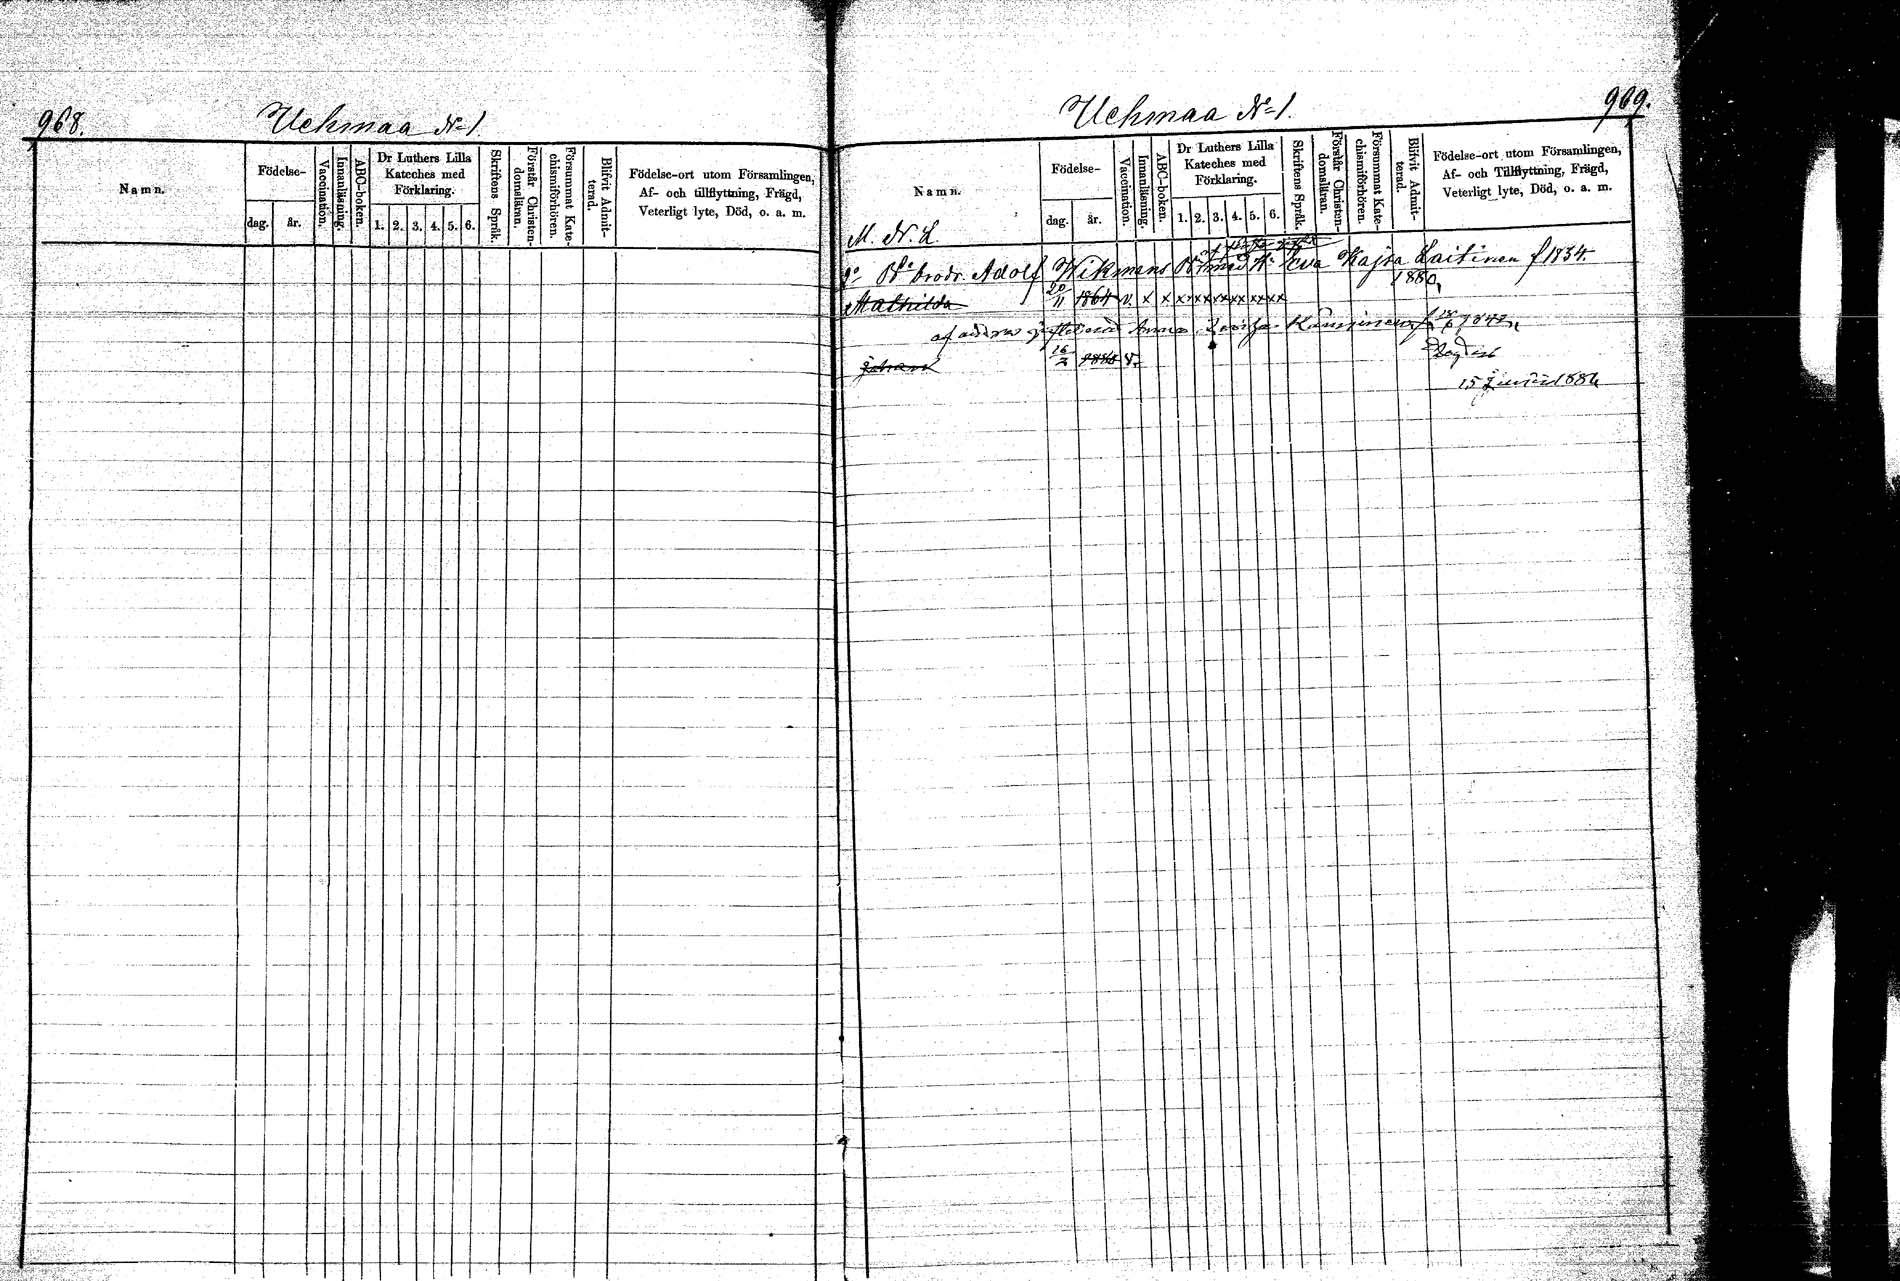 968.
Uehmaa No 1.
Namn.
Födelse-
dag. år.
Vaccination.
Innanläsning.
ABC-boken.
Dr Luthers Lilla
Kateches med
Förklaring.
1. 2. 3. 4. 5. 6.
Skriftens Språk.
Förstår Christen-
domsläran.
Försummat Kate-
chismiförhören.
Blifvit Admit-
terad.
Födelse-ort utom Församlingen,
Af- och tillflyttning, Frägd,
Veterligt lyte, Död, o. a. m.
Uehmaa No 1.
969.
Namn.
Födelse-
dag. år.
Vaccination.
Innanläsning.
ABC-boken.
Dr Luthers Lilla
Kateches med
Förklaring.
1. 2. 3. 4. 5. 6.
Skriftens Språk.
Förstår Christen-
domsläran.
Försummat Kate-
chismiförhören.
Blifvit Admit-
terad.
Födelse-ort utom Församlingen,
Af- och Tillflyttning, Frägd,
Veterligt lyte, Död, o. a. m.
M. N. L.
brodr. Adolf Wikmans Eva Kajsa Laitinen f 1834.
1880,
Mathilda 20/11 1864 v. x x x x x x x x x x x x
Anna Lovisa
Johan 16/2 v.
15 1886